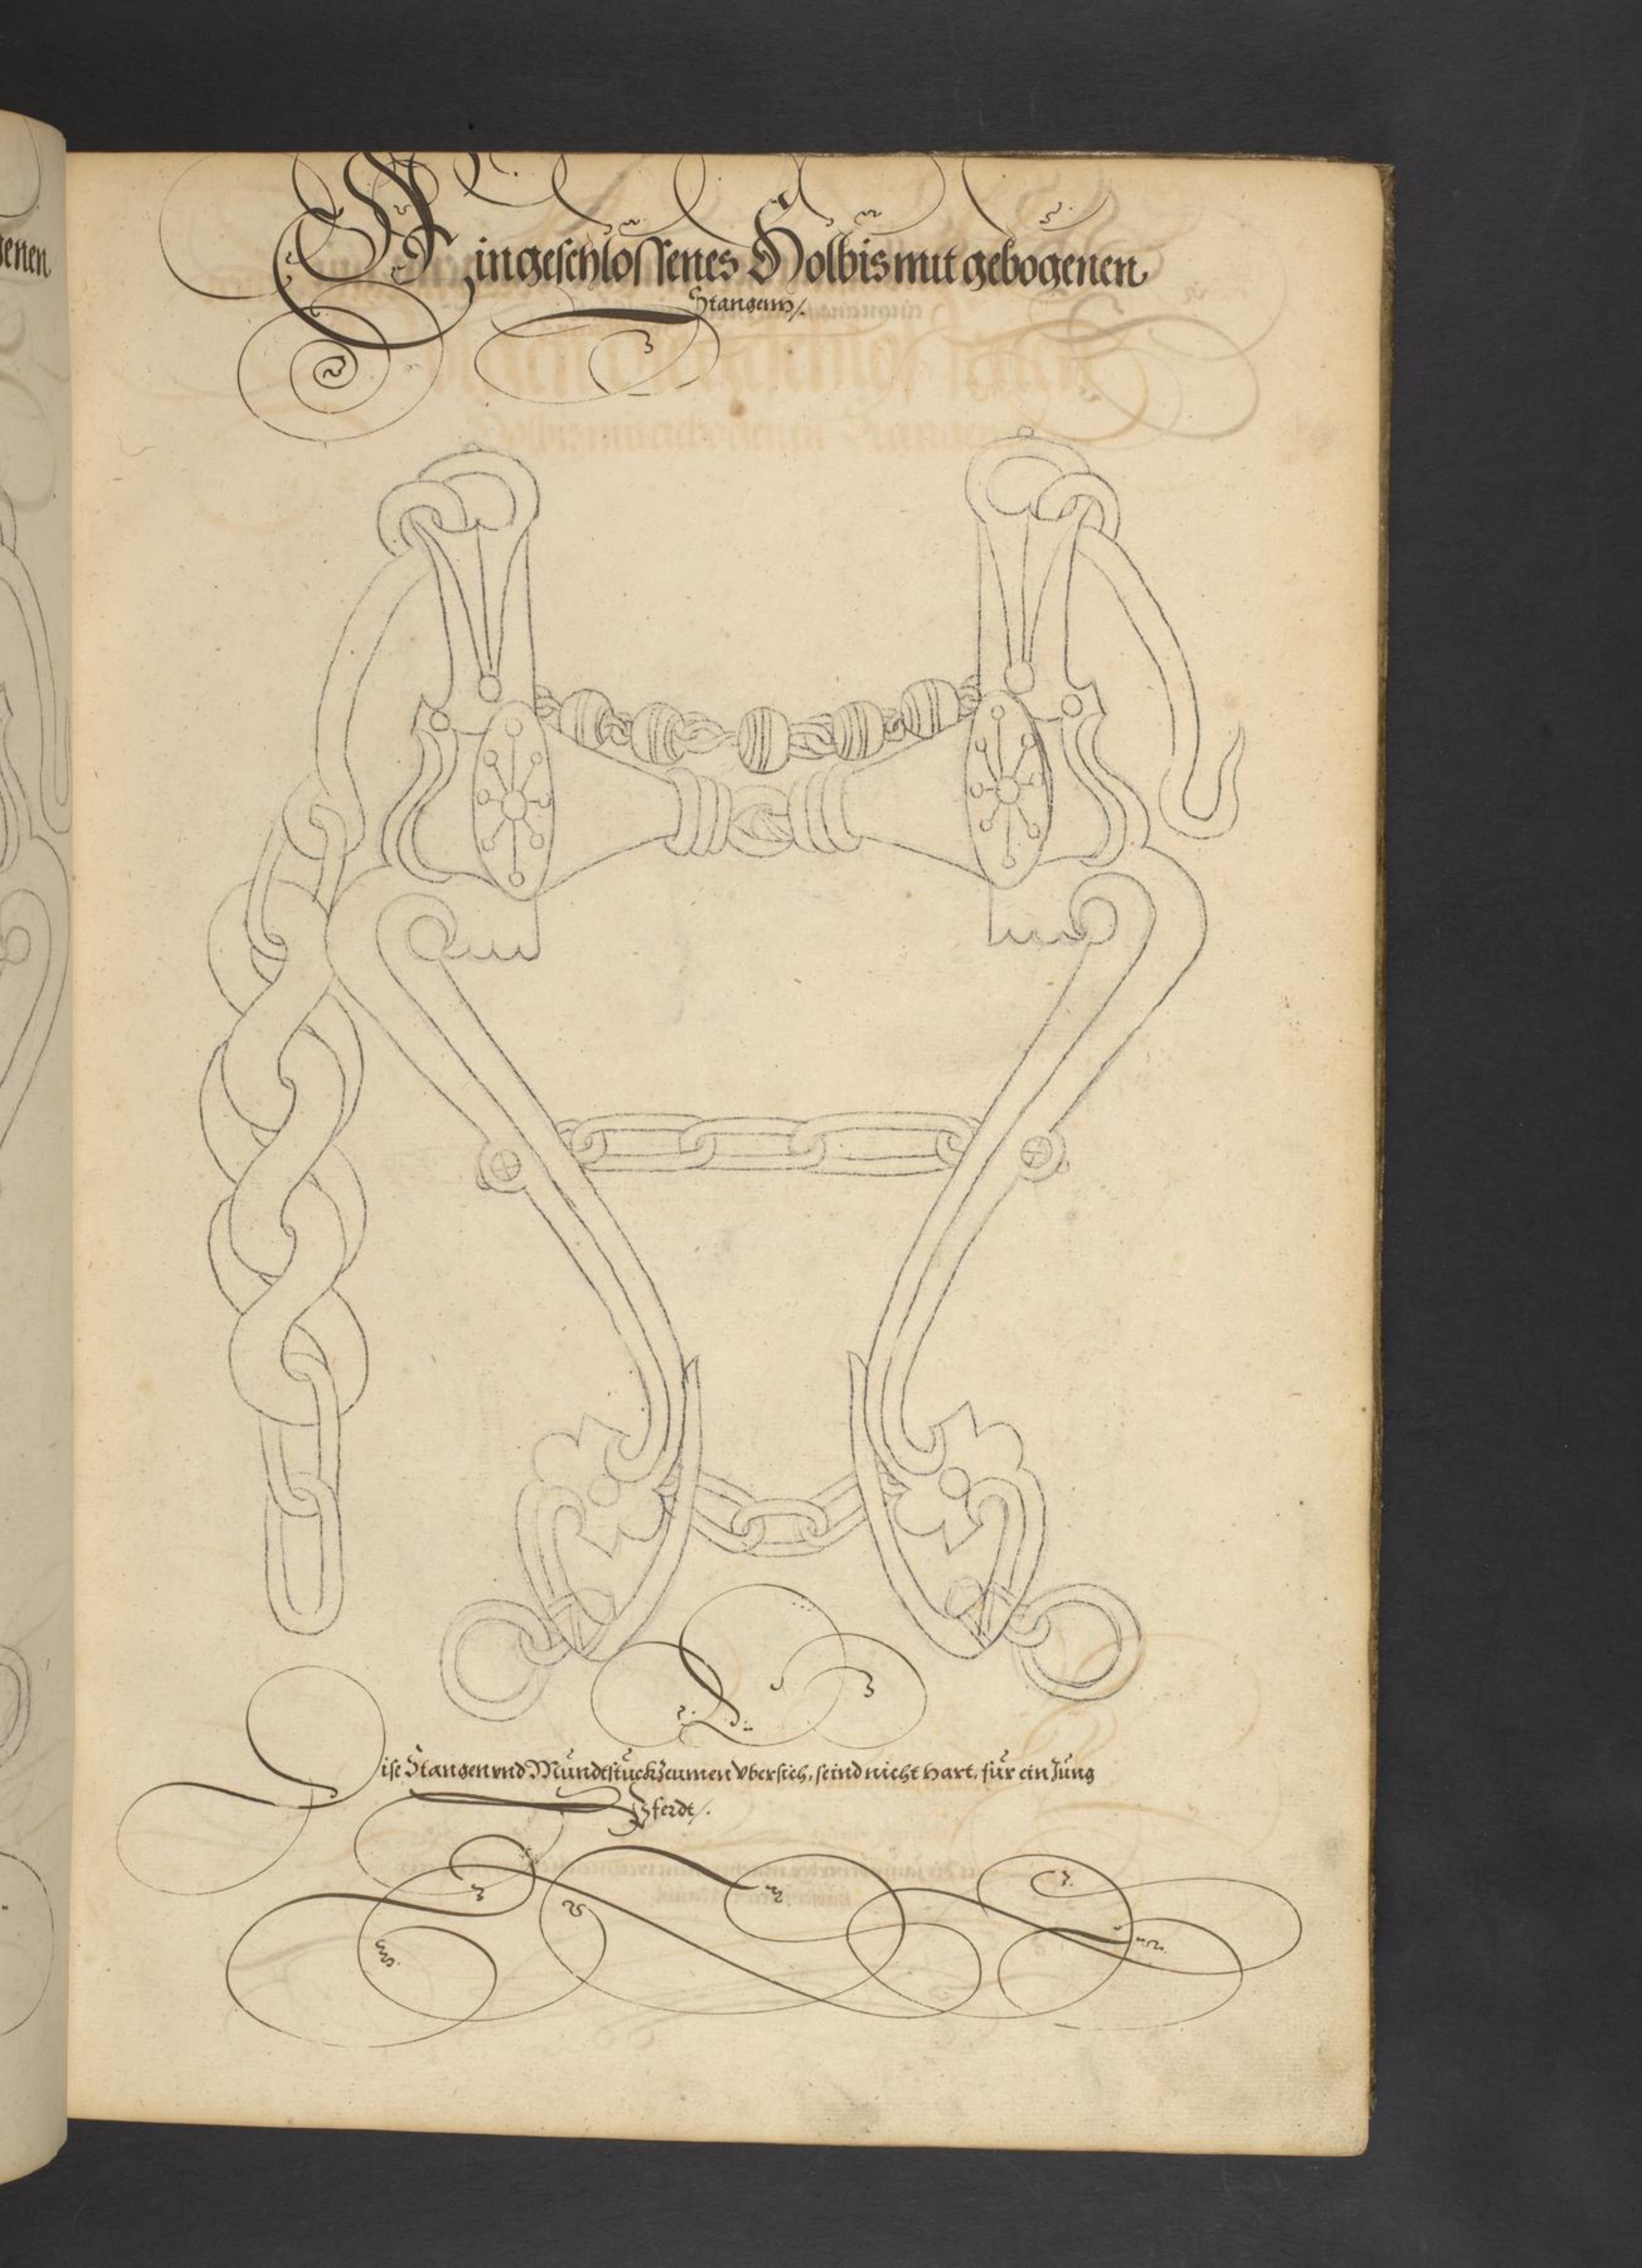 genen
Ein geschlossenes Holbis mit gebogenen
Stangenn /.
Dise Stangen vnd Mundtstuck Zeumen vbersich, seind nicht hart, für ein Jung
Pferdt /.